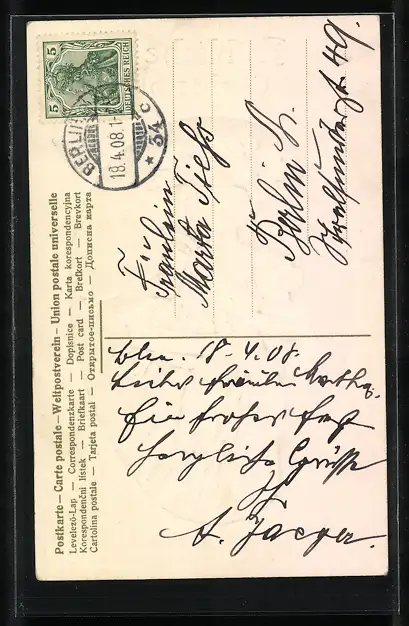 Postkarte — Carte postale — Weltpostverein — Union postale universelle
Levelező-Lap — Correspondenzkarte — Dopisnice — Karta korespondencyjna
Korespondenční lístek — Briefkaart — Post card — Brefkort — Brevkort
Cartolina postale — Tarjeta postal — Открытое письмо — Дописна карта
5 5
DEUTSCHES REICH
BERLIN
18.4.08.1-
* 54 c
Für
Fräulein
Marta
Berlin N.
49.
Bln. 18.4.08.
Fräulein Martha.
Ein frohes Fest
herzliche Grüsse
A. Jaeger.